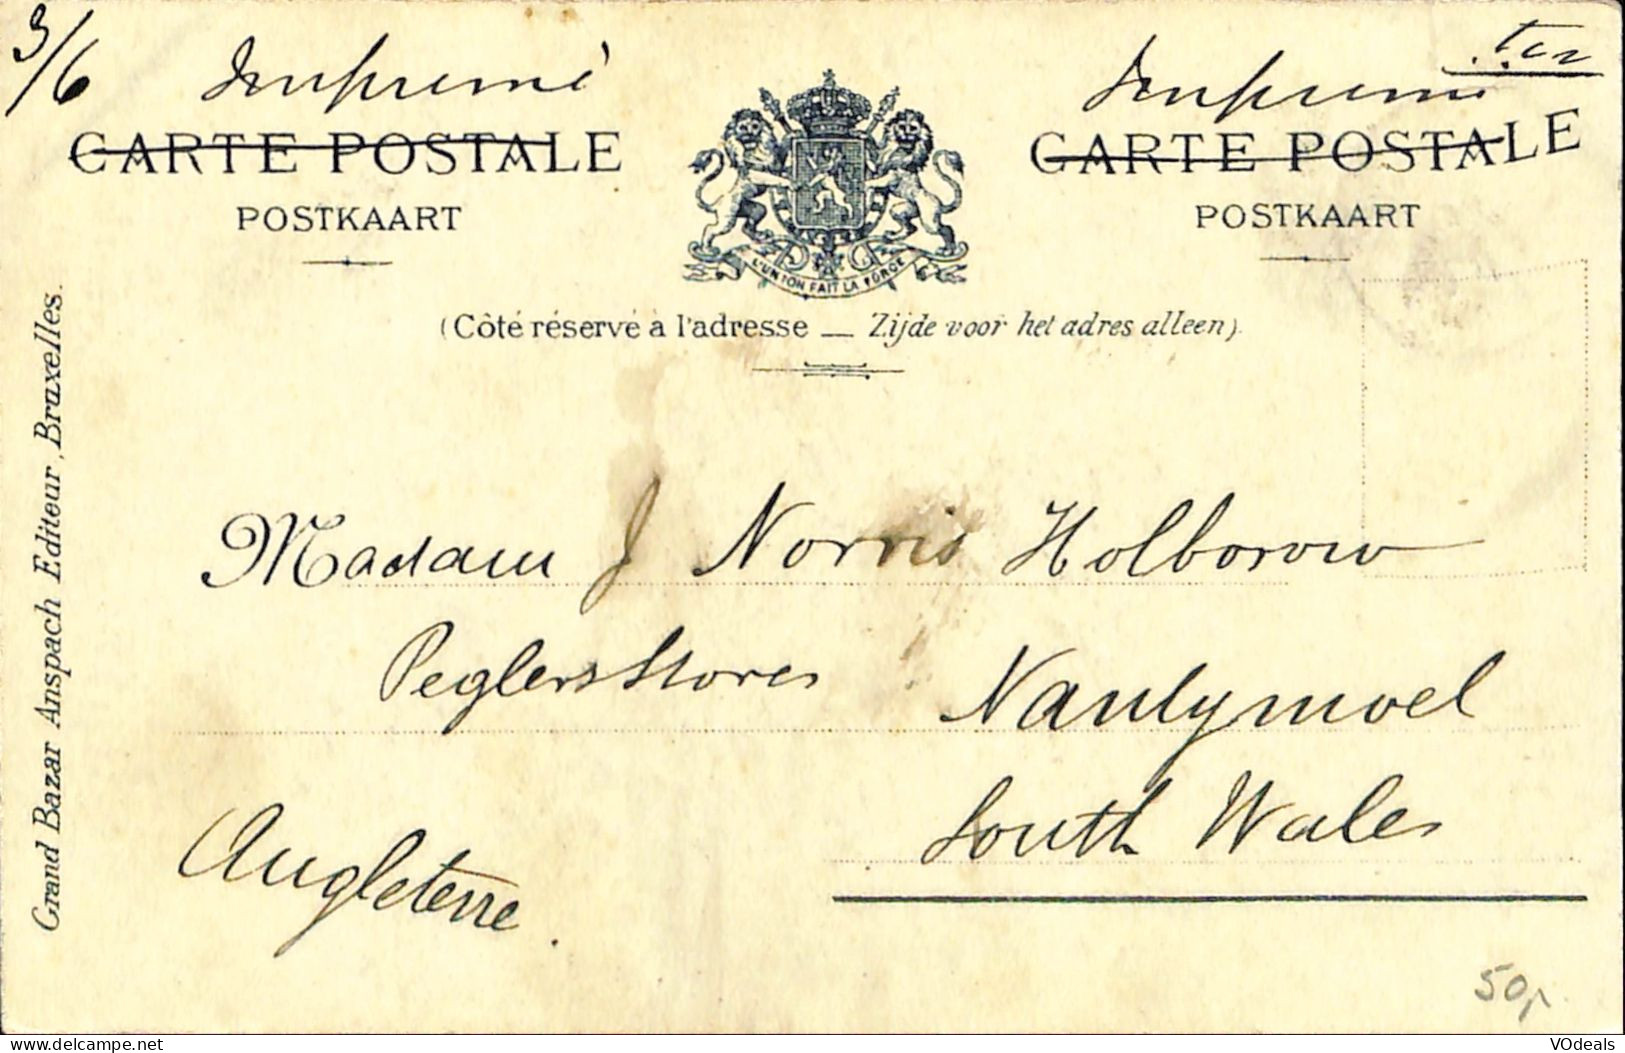 3/6 Imprimé
Imprimé
CARTE POSTALE
POSTKAART
CARTE POSTALE
POSTKAART
L'UNION FAIT LA FORCE
(Côté réservé à l'adresse — Zijde voor het adres alleen)
Grand Bazar Anspach Editeur, Bruxelles.
Madam J Norris Holborow
Peglers Stores
Nantymoel
South Wales
Angleterre.
50p
www.delcampe.net
VOdeals